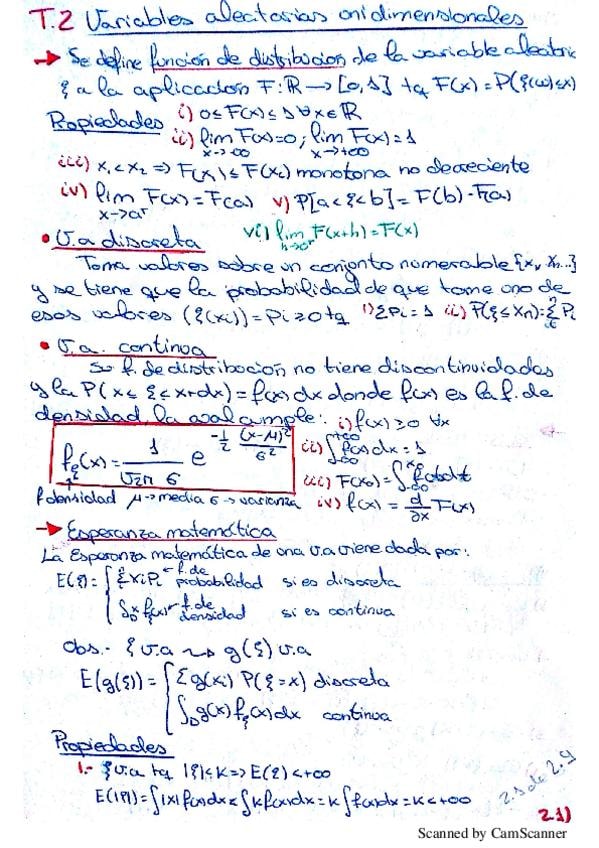 T.2 Variables aleatorias unidimensionales
→ Se define función de distribucion de la variable aleatoria
ξ a la aplicación F: ℝ → [0,1] tq F(x) = P(ξ(ω) ≤ x)
Propiedades i) 0 ≤ F(x) ≤ 1 ∀x ∈ ℝ
ii) lim F(x) = 0 ; lim F(x) = 1
x→-∞ x→+∞
iii) x₁ < x₂ => F(x₁) ≤ F(x₂) monotona no decreciente
iv) lim F(x) = F(a) v) P[a < ξ < b] = F(b) - F(a)
x→a⁺
vi) lim F(x+h) = F(x)
h→0⁺
• V.a discreta
Toma valores sobre un conjunto numerable {x₁, xₙ...}
y se tiene que la probabilidad de que tome uno de
esos valores (ξ(xi)) = Pi ≥ 0 tq i) ΣPi = 1 ii) P(ξ ≤ xn) = Σ Pi
• V.a. continua
Su f. de distribución no tiene discontinuidades
y la P(x ≤ ξ ≤ x+dx) = f(x) dx donde f(x) es la f. de
densidad, la cual cumple: i) f(x) ≥ 0 ∀x
fξ(x) = 1/(√2π σ) e^(-1/2 (x-μ)²/σ²) ii) ∫_{-∞}^{+∞} f(x)dx = 1
iii) F(x₀) = ∫_{-∞}^{x₀} f(t)dt
f densidad μ→media σ→varianza iv) f(x) = d/dx F(x)
→ Esperanza matemática
La Esperanza matemática de una v.a viene dada por:
E(ξ) = { Σ xi Pi ← f. de probabilidad si es discreta
∫_D x f(x) f. de densidad si es continua
Obs.- ξ v.a ⇝ g(ξ) v.a
E(g(ξ)) = { Σ g(xi) P(ξ = x) discreta
∫_D g(x) fξ(x) dx continua
Propiedades
1.- ξ v.a tq |ξ| < K => E(ξ) < +∞
E(|ξ|) = ∫|x| f(x)dx < ∫K f(x)dx = K ∫f(x)dx = K < +∞
2.1 de 2.9
2.1)
Scanned by CamScanner